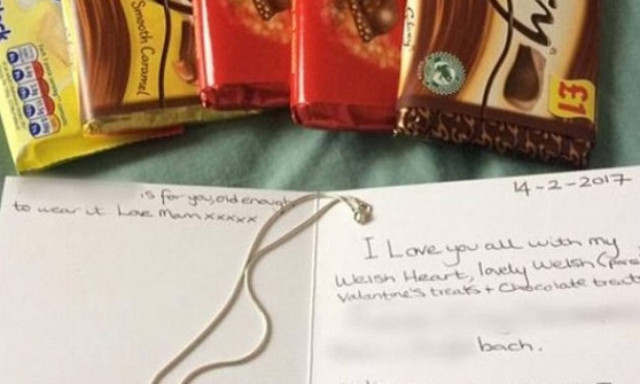 Smooth Caramel
Galaxy
£1
is for you, old enough
to wear it Love Mam xxxxx
14-2-2017
I Love you all with my
Welsh Heart, lovely Welsh
Valantine's treats + Chocolate treat
bach.